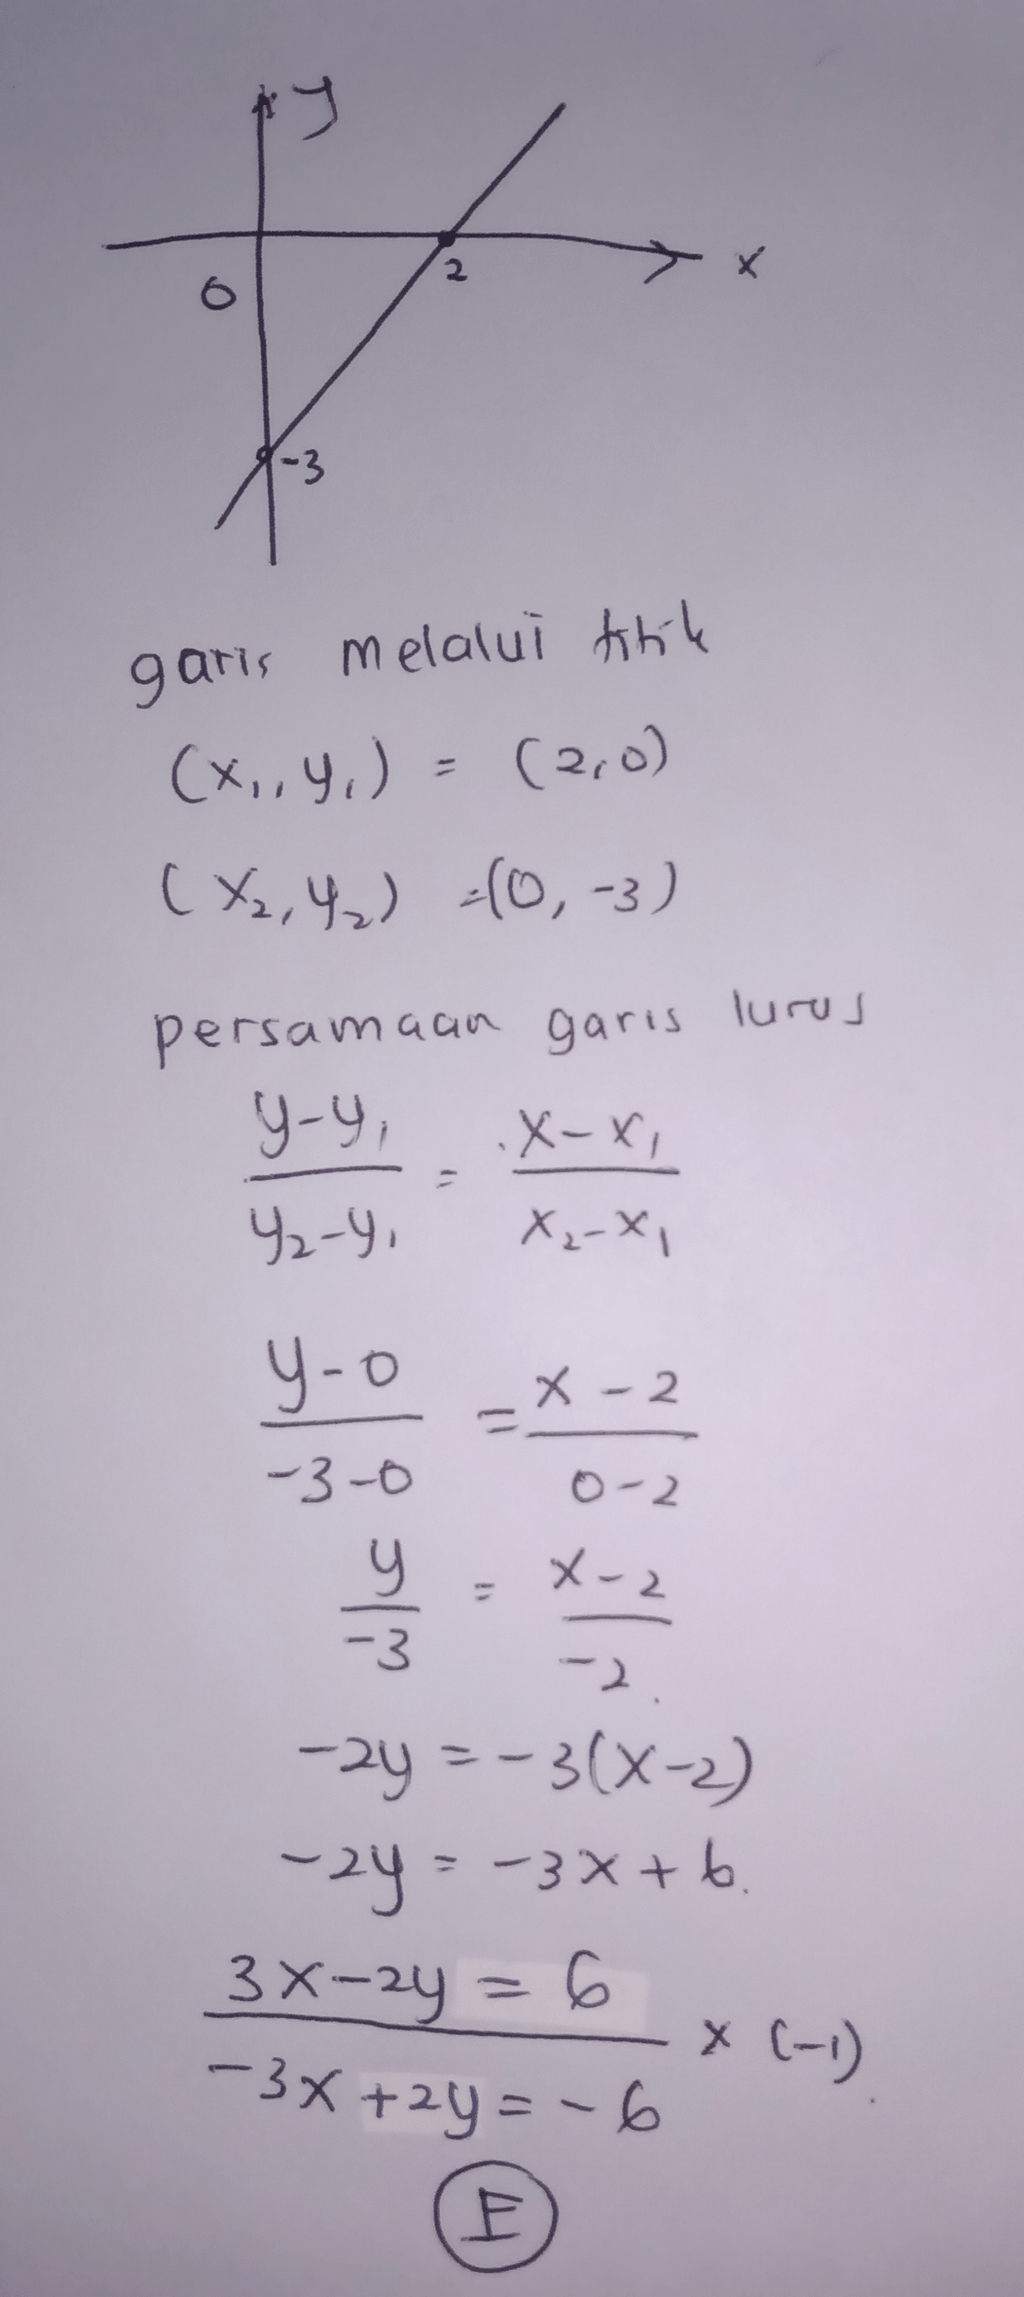 y
x
0
2
-3
garis melalui titik
(x₁, y₁) = (2,0)
(x₂, y₂) = (0, -3)
persamaan garis lurus
y-y₁ / y₂-y₁ = x-x₁ / x₂-x₁
y-0 / -3-0 = x-2 / 0-2
y / -3 = x-2 / -2
-2y = -3(x-2)
-2y = -3x + 6.
3x-2y = 6
x (-1)
-3x+2y = -6
E